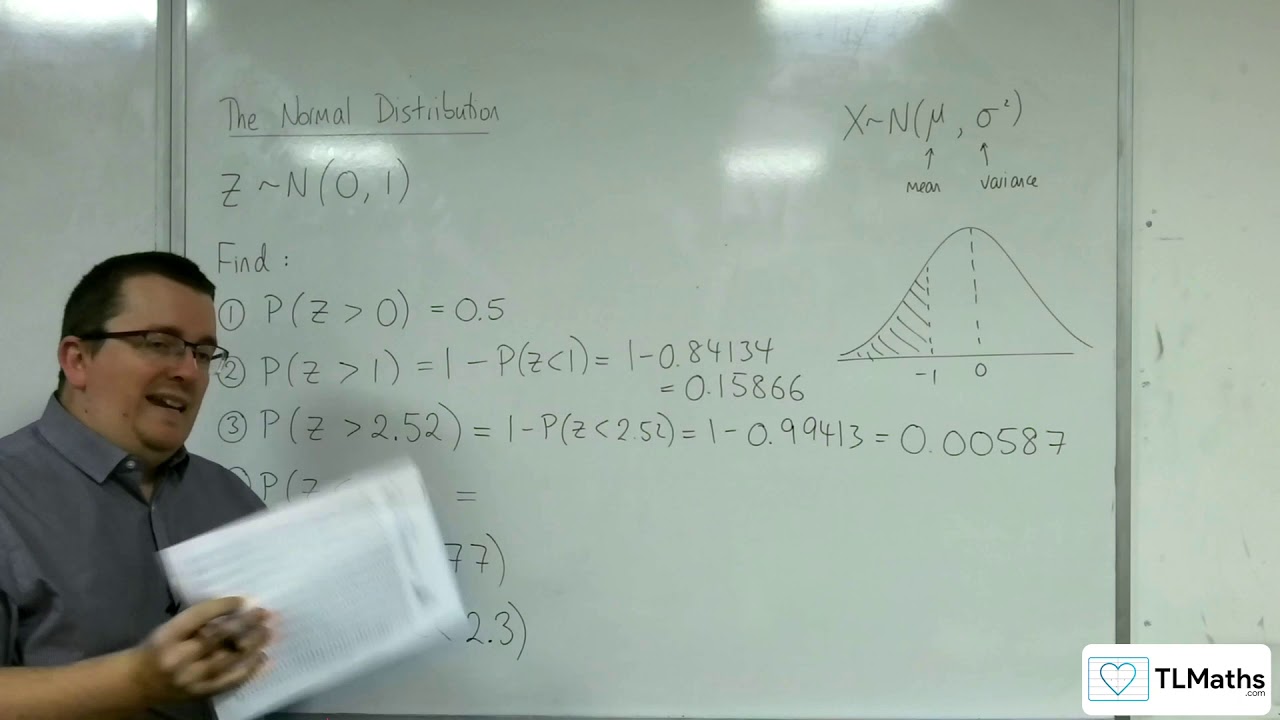 The Normal Distribution
X~N(μ, σ²)
↑ ↑
mean variance
Z ~ N(0, 1)
Find :
① P(Z > 0) = 0.5
② P(Z > 1) = 1 - P(Z<1) = 1 - 0.84134
= 0.15866
-1 0
③ P(Z > 2.52) = 1 - P(Z < 2.52) = 1 - 0.99413 = 0.00587
P(Z =
77)
2.3)
TLMaths
.com